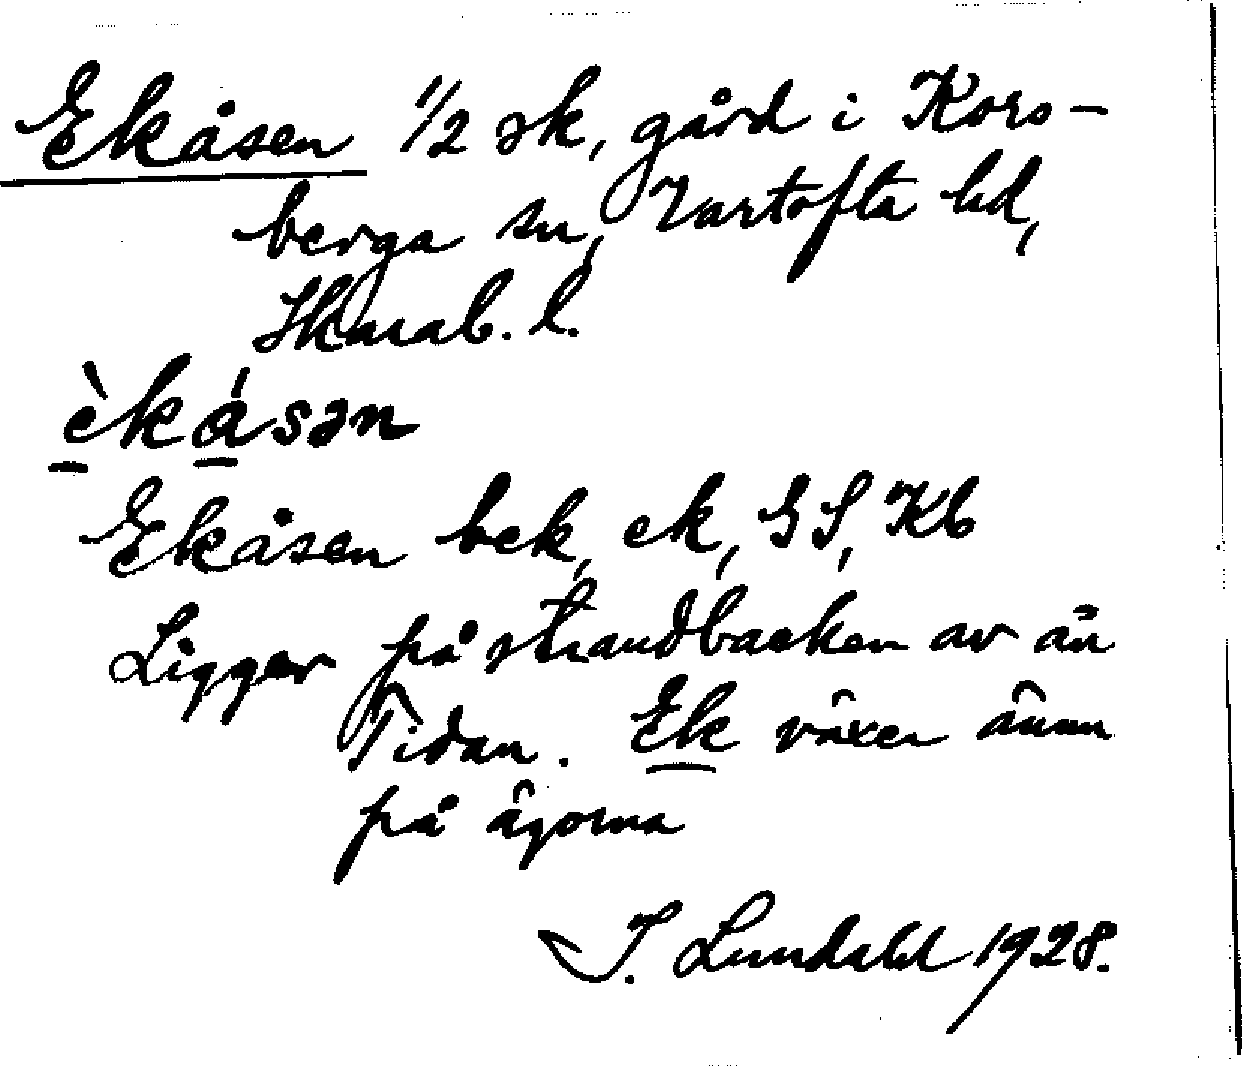 Ekåsen 1/2 sk, gård i Kors-
berga sn, Vartofta hd,
Skarab. l.
èkásən
Ekåsen bek, ek, GS, Kb
Ligger på strandbacken av ån
Tidan. Ek växer ännu
på ägorna
I. Lundahl 1928.